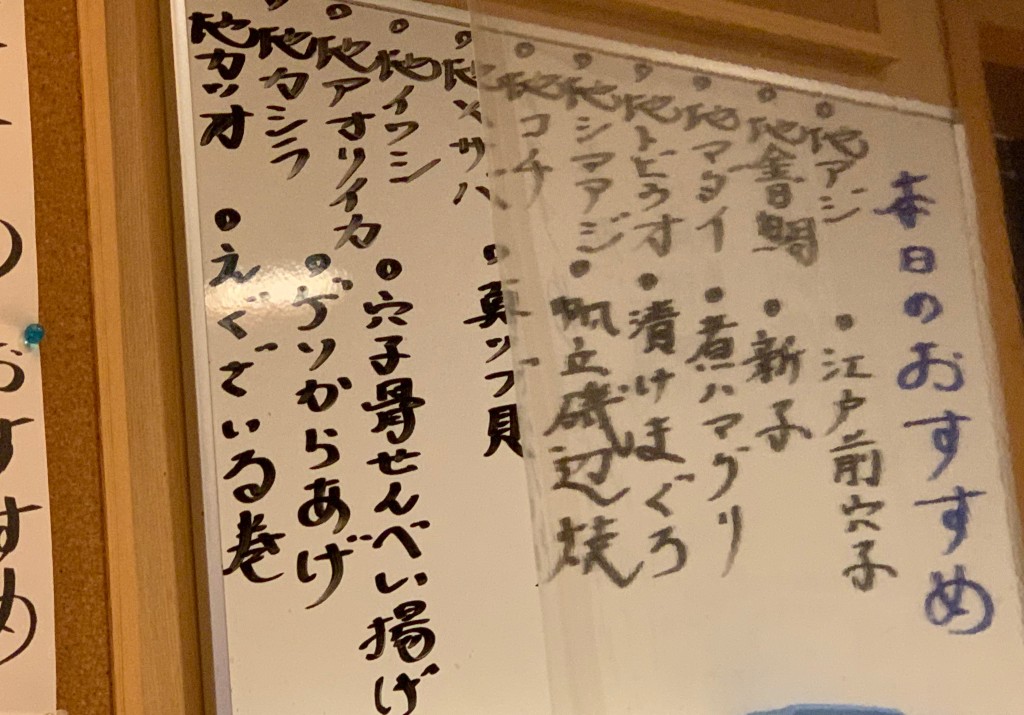 本日のおすすめ
・地アジ ・江戸前穴子
・地金目鯛 ・新子
・地マダイ ・煮ハマグリ
・地トビウオ ・漬けまぐろ
・地シマアジ ・帆立磯辺焼
・地コチ
・地〆サバ ・真ツブ貝
・地イワシ ・穴子骨せんべい揚げ
・地アオリイカ ・ゲソからあげ
・地カシラ
・地カツオ ・えぐざいる巻
のおすすめ